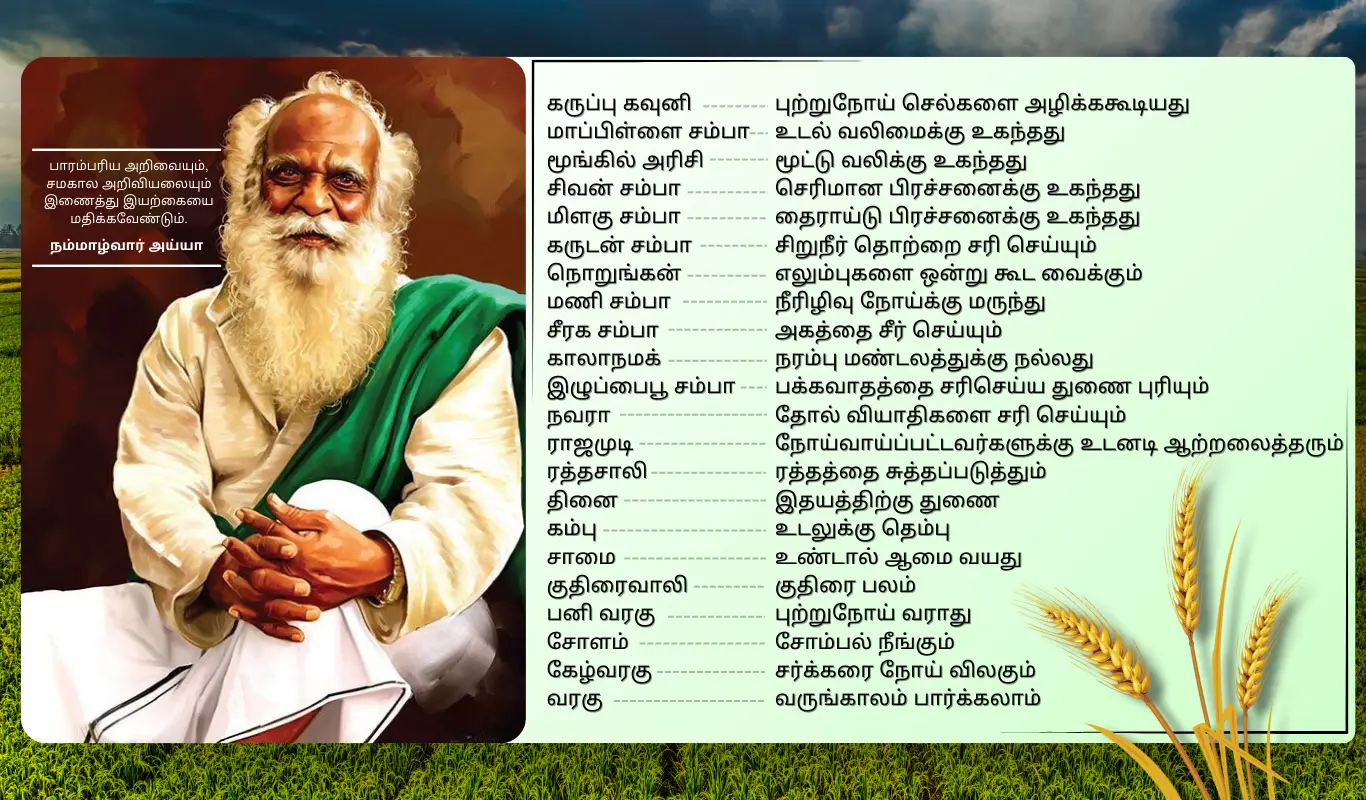 பாரம்பரிய அறிவையும்,
சமகால அறிவியலையும்
இணைத்து இயற்கையை
மதிக்கவேண்டும்.
நம்மாழ்வார் அய்யா
கருப்பு கவுனி --------- புற்றுநோய் செல்களை அழிக்ககூடியது
மாப்பிள்ளை சம்பா--- உடல் வலிமைக்கு உகந்தது
மூங்கில் அரிசி -------- மூட்டு வலிக்கு உகந்தது
சிவன் சம்பா ----------- செரிமான பிரச்சனைக்கு உகந்தது
மிளகு சம்பா ----------- தைராய்டு பிரச்சனைக்கு உகந்தது
கருடன் சம்பா --------- சிறுநீர் தொற்றை சரி செய்யும்
நொறுங்கன் ----------- எலும்புகளை ஒன்று கூட வைக்கும்
மணி சம்பா ------------ நீரிழிவு நோய்க்கு மருந்து
சீரக சம்பா -------------- அகத்தை சீர் செய்யும்
காலாநமக் -------------- நரம்பு மண்டலத்துக்கு நல்லது
இழுப்பைபூ சம்பா ---- பக்கவாதத்தை சரிசெய்ய துணை புரியும்
நவரா --------------------- தோல் வியாதிகளை சரி செய்யும்
ராஜமுடி ------------------ நோய்வாய்ப்பட்டவர்களுக்கு உடனடி ஆற்றலைத்தரும்
ரத்தசாலி ---------------- ரத்தத்தை சுத்தப்படுத்தும்
தினை -------------------- இதயத்திற்கு துணை
கம்பு ----------------------- உடலுக்கு தெம்பு
சாமை -------------------- உண்டால் ஆமை வயது
குதிரைவாலி ---------- குதிரை பலம்
பனி வரகு -------------- புற்றுநோய் வராது
சோளம் ------------------ சோம்பல் நீங்கும்
கேழ்வரகு --------------- சர்க்கரை நோய் விலகும்
வரகு --------------------- வருங்காலம் பார்க்கலாம்